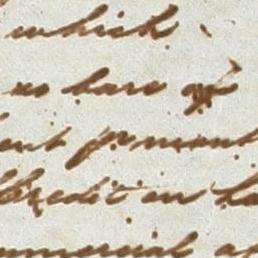 which
so bare of
ent pr month
Credit in ba
mmercial a